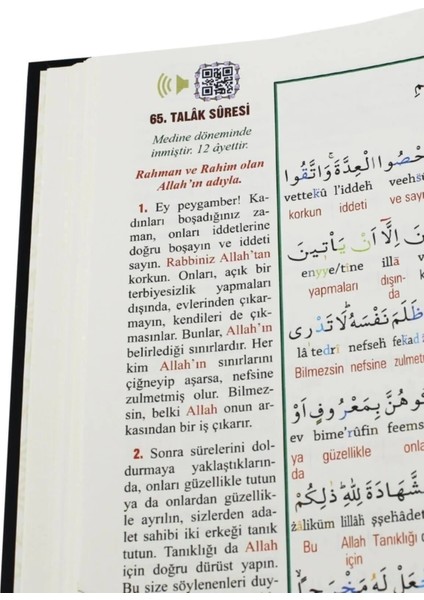 65. TALÂK SÛRESİ
Medine döneminde
inmiştir. 12 âyettir.
Rahman ve Rahim olan
Allah'ın adıyla.
1. Ey peygamber! Ka-
dınları boşadığınız za-
man, onları iddetlerine
doğru boşayın ve iddeti
sayın. Rabbiniz Allah'tan
korkun. Onları, açık bir
terbiyesizlik yapmaları
dışında, evlerinden çıkar-
mayın, kendileri de çık-
masınlar. Bunlar, Allah'ın
belirlediği sınırlardır. Her
kim Allah'ın sınırlarını
çiğneyip aşarsa, nefsine
zulmetmiş olur. Bilmez-
sin, belki Allah onun ar-
kasından bir iş çıkarır.
2. Sonra sürelerini dol-
durmaya yaklaştıkların-
da, onları güzellikle tutun
ya da onlardan güzellik-
le ayrılın, sizlerden ada-
let sahibi iki erkeği tanık
tutun. Tanıklığı da Allah
için doğru dürüst yapın.
Bu size söylenenleri duy-
الْعِدَّةَ وَاتَّقُوا
vettekû l'iddeñ
korkun iddeti ve
اِلَّا اَنْ يَأْتِينَ
enyye/tîne illâ
yapmaları dışın-
da
ظَلَمَ نَفْسَهُ لَا تَدْرِى
lâ tedrî nefseñ
Bilmezsin nefsine
بِمَعْرُوفٍ اَوْ
ev bime'rûfin
ya güzellikle
da
الشَّهَادَةَ لِلّٰهِ ذٰلِكُمْ
żâliküm lillâñ
Bu Allah Tanıklığı
için
لَهُ مَخْرَجًا